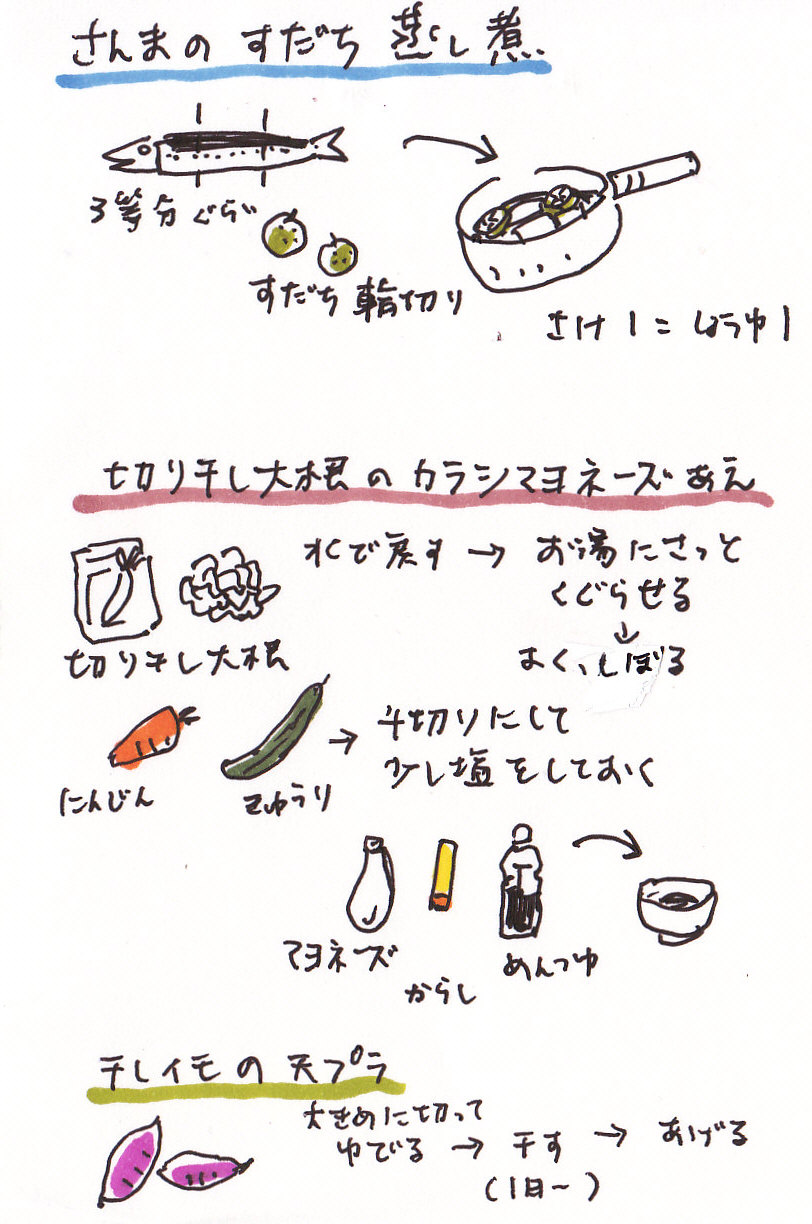 さんまの すだち 蒸し煮
3等分ぐらい
すだち 輪切り
さけ1=しょうゆ1
切り干し大根の カラシマヨネーズあえ
水で戻す → お湯にさっと
くぐらせる
↓
よく、しぼる
切り干し大根
→ 千切りにして
少し塩をしておく
にんじん きゅうり
マヨネーズ
からし
めんつゆ
干しイモの 天プラ
大きめに切って
ゆでる → 干す → あげる
(1日〜)